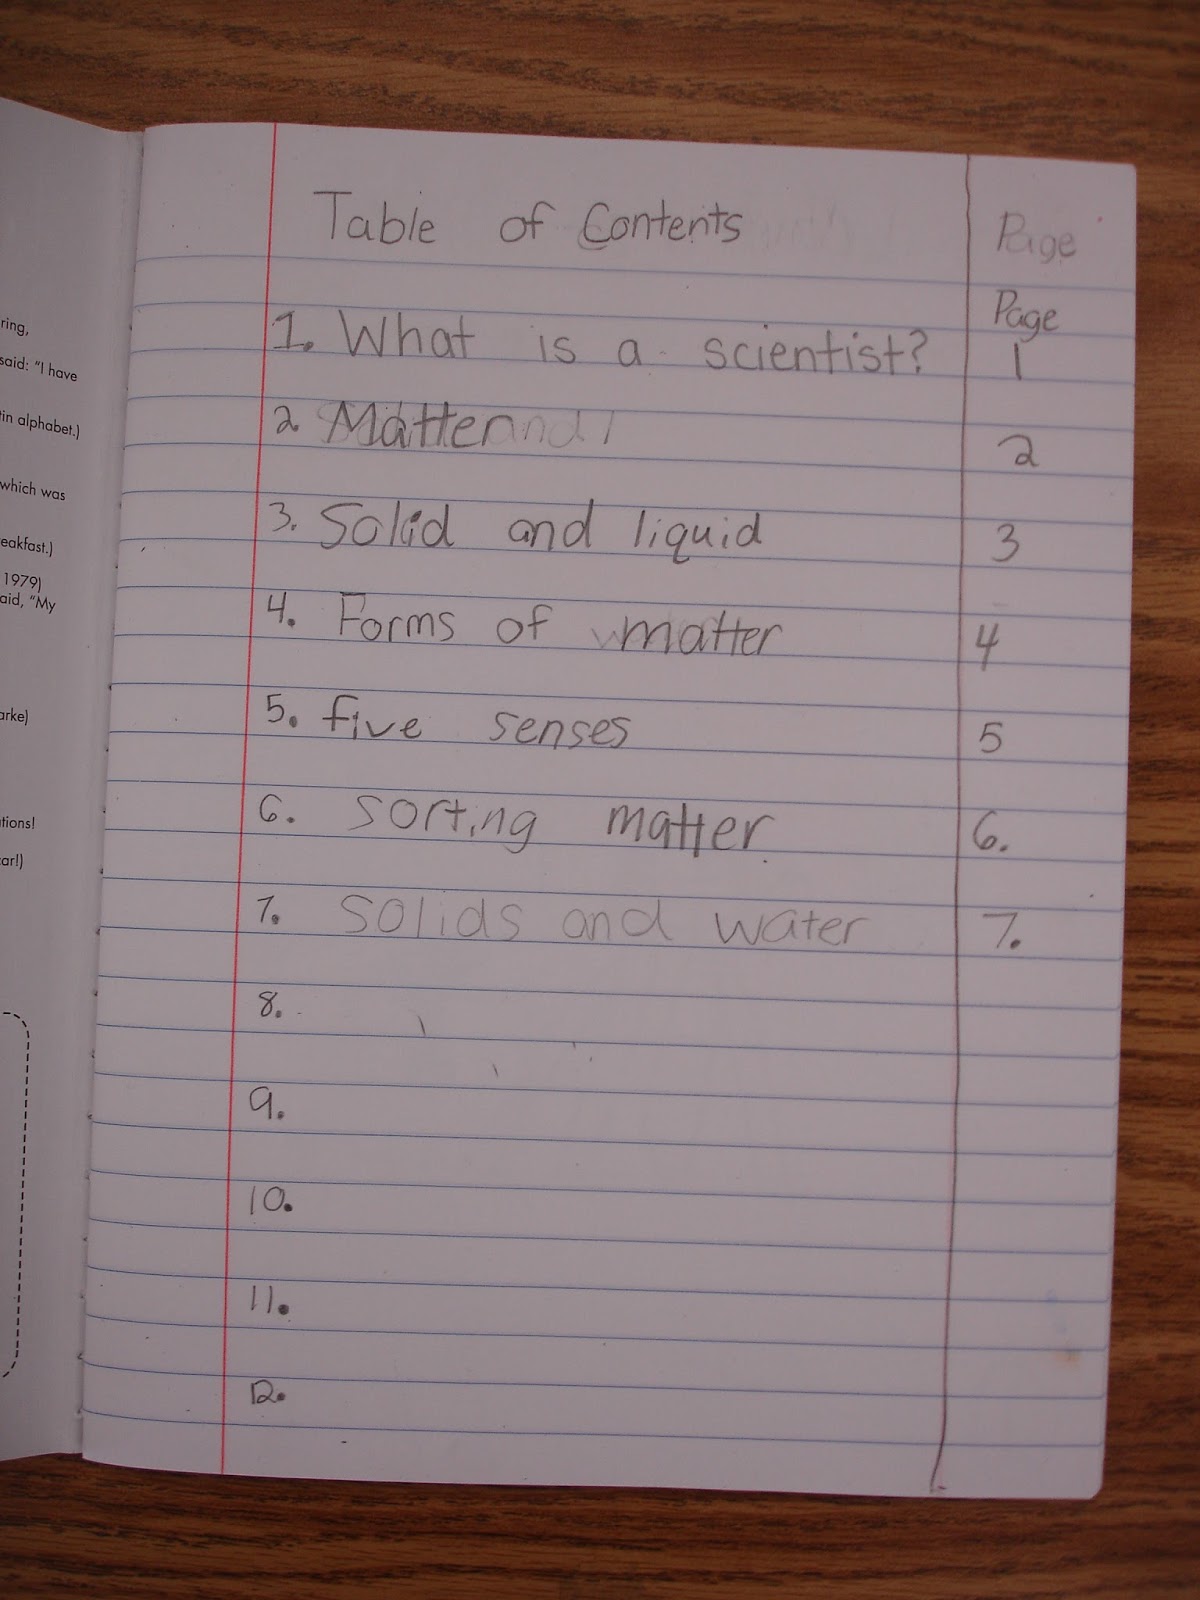 Table of Contents Page
Page
1. What is a scientist? 1
2 Matter 2
3. Solid and liquid 3
4. Forms of matter 4
5. five senses 5
6. sorting matter 6.
7. solids and water 7.
8.
9.
10.
11.
12.
ring,
said: "I have
tin alphabet.)
which was
eakfast.)
1979)
aid, "My
arke)
tions!
car!)